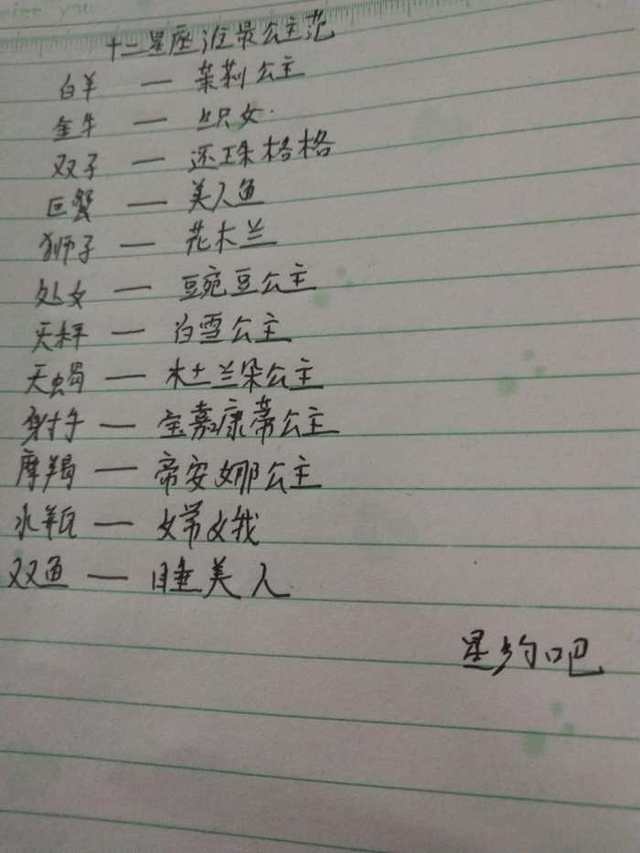 十二星座谁最公主范
白羊 — 茉莉公主
金牛 — 织女
双子 — 还珠格格
巨蟹 — 美人鱼
狮子 — 花木兰
处女 — 豆豌豆公主
天秤 — 白雪公主
天蝎 — 杜兰朵公主
射手 — 宝嘉康蒂公主
摩羯 — 帝安娜公主
水瓶 — 嫦娥
双鱼 — 睡美人
星约吧